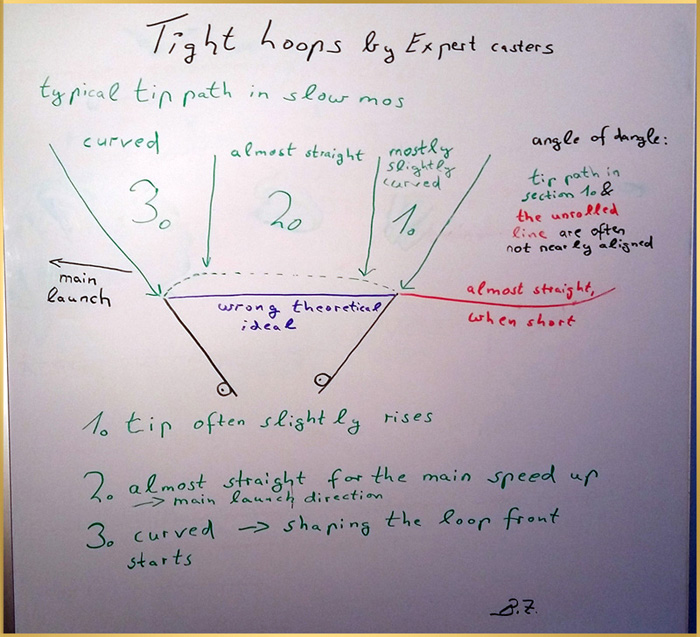 Tight loops by Expert casters
typical tip path in slow mos
curved
almost straight
mostly
slightly
curved
angle of dangle:
tip path in
section 1. &
the unrolled
line are often
not nearly aligned
3.
2.
1.
main
launch
wrong theoretical
ideal
almost straight,
when short
1. tip often slightly rises
2. almost straight for the main speed up
→ main launch direction
3. curved → shaping the loop front
starts
B.Z.